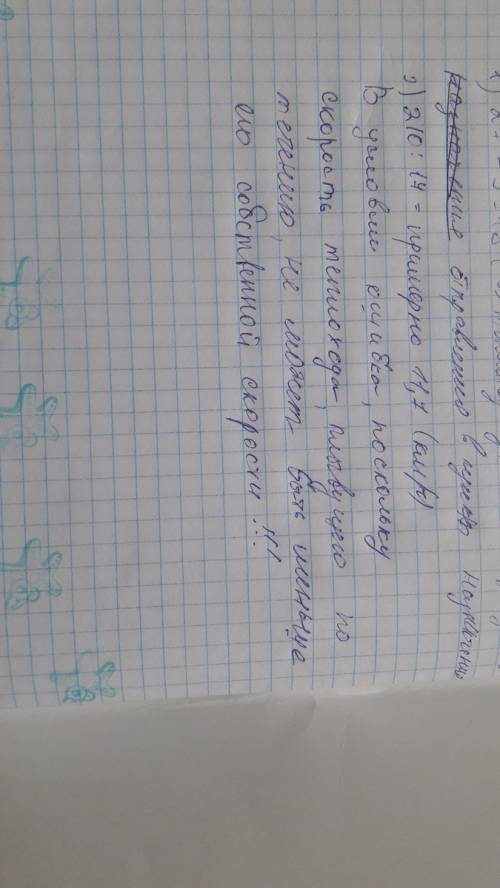 отправления в пункт назначения
2) 210 : 14 = примерно 11,7 (км/ч)
В условии ошибка, поскольку
скорость теплохода, плывущего по
течению, не может быть меньше
его собственной скорости!!!